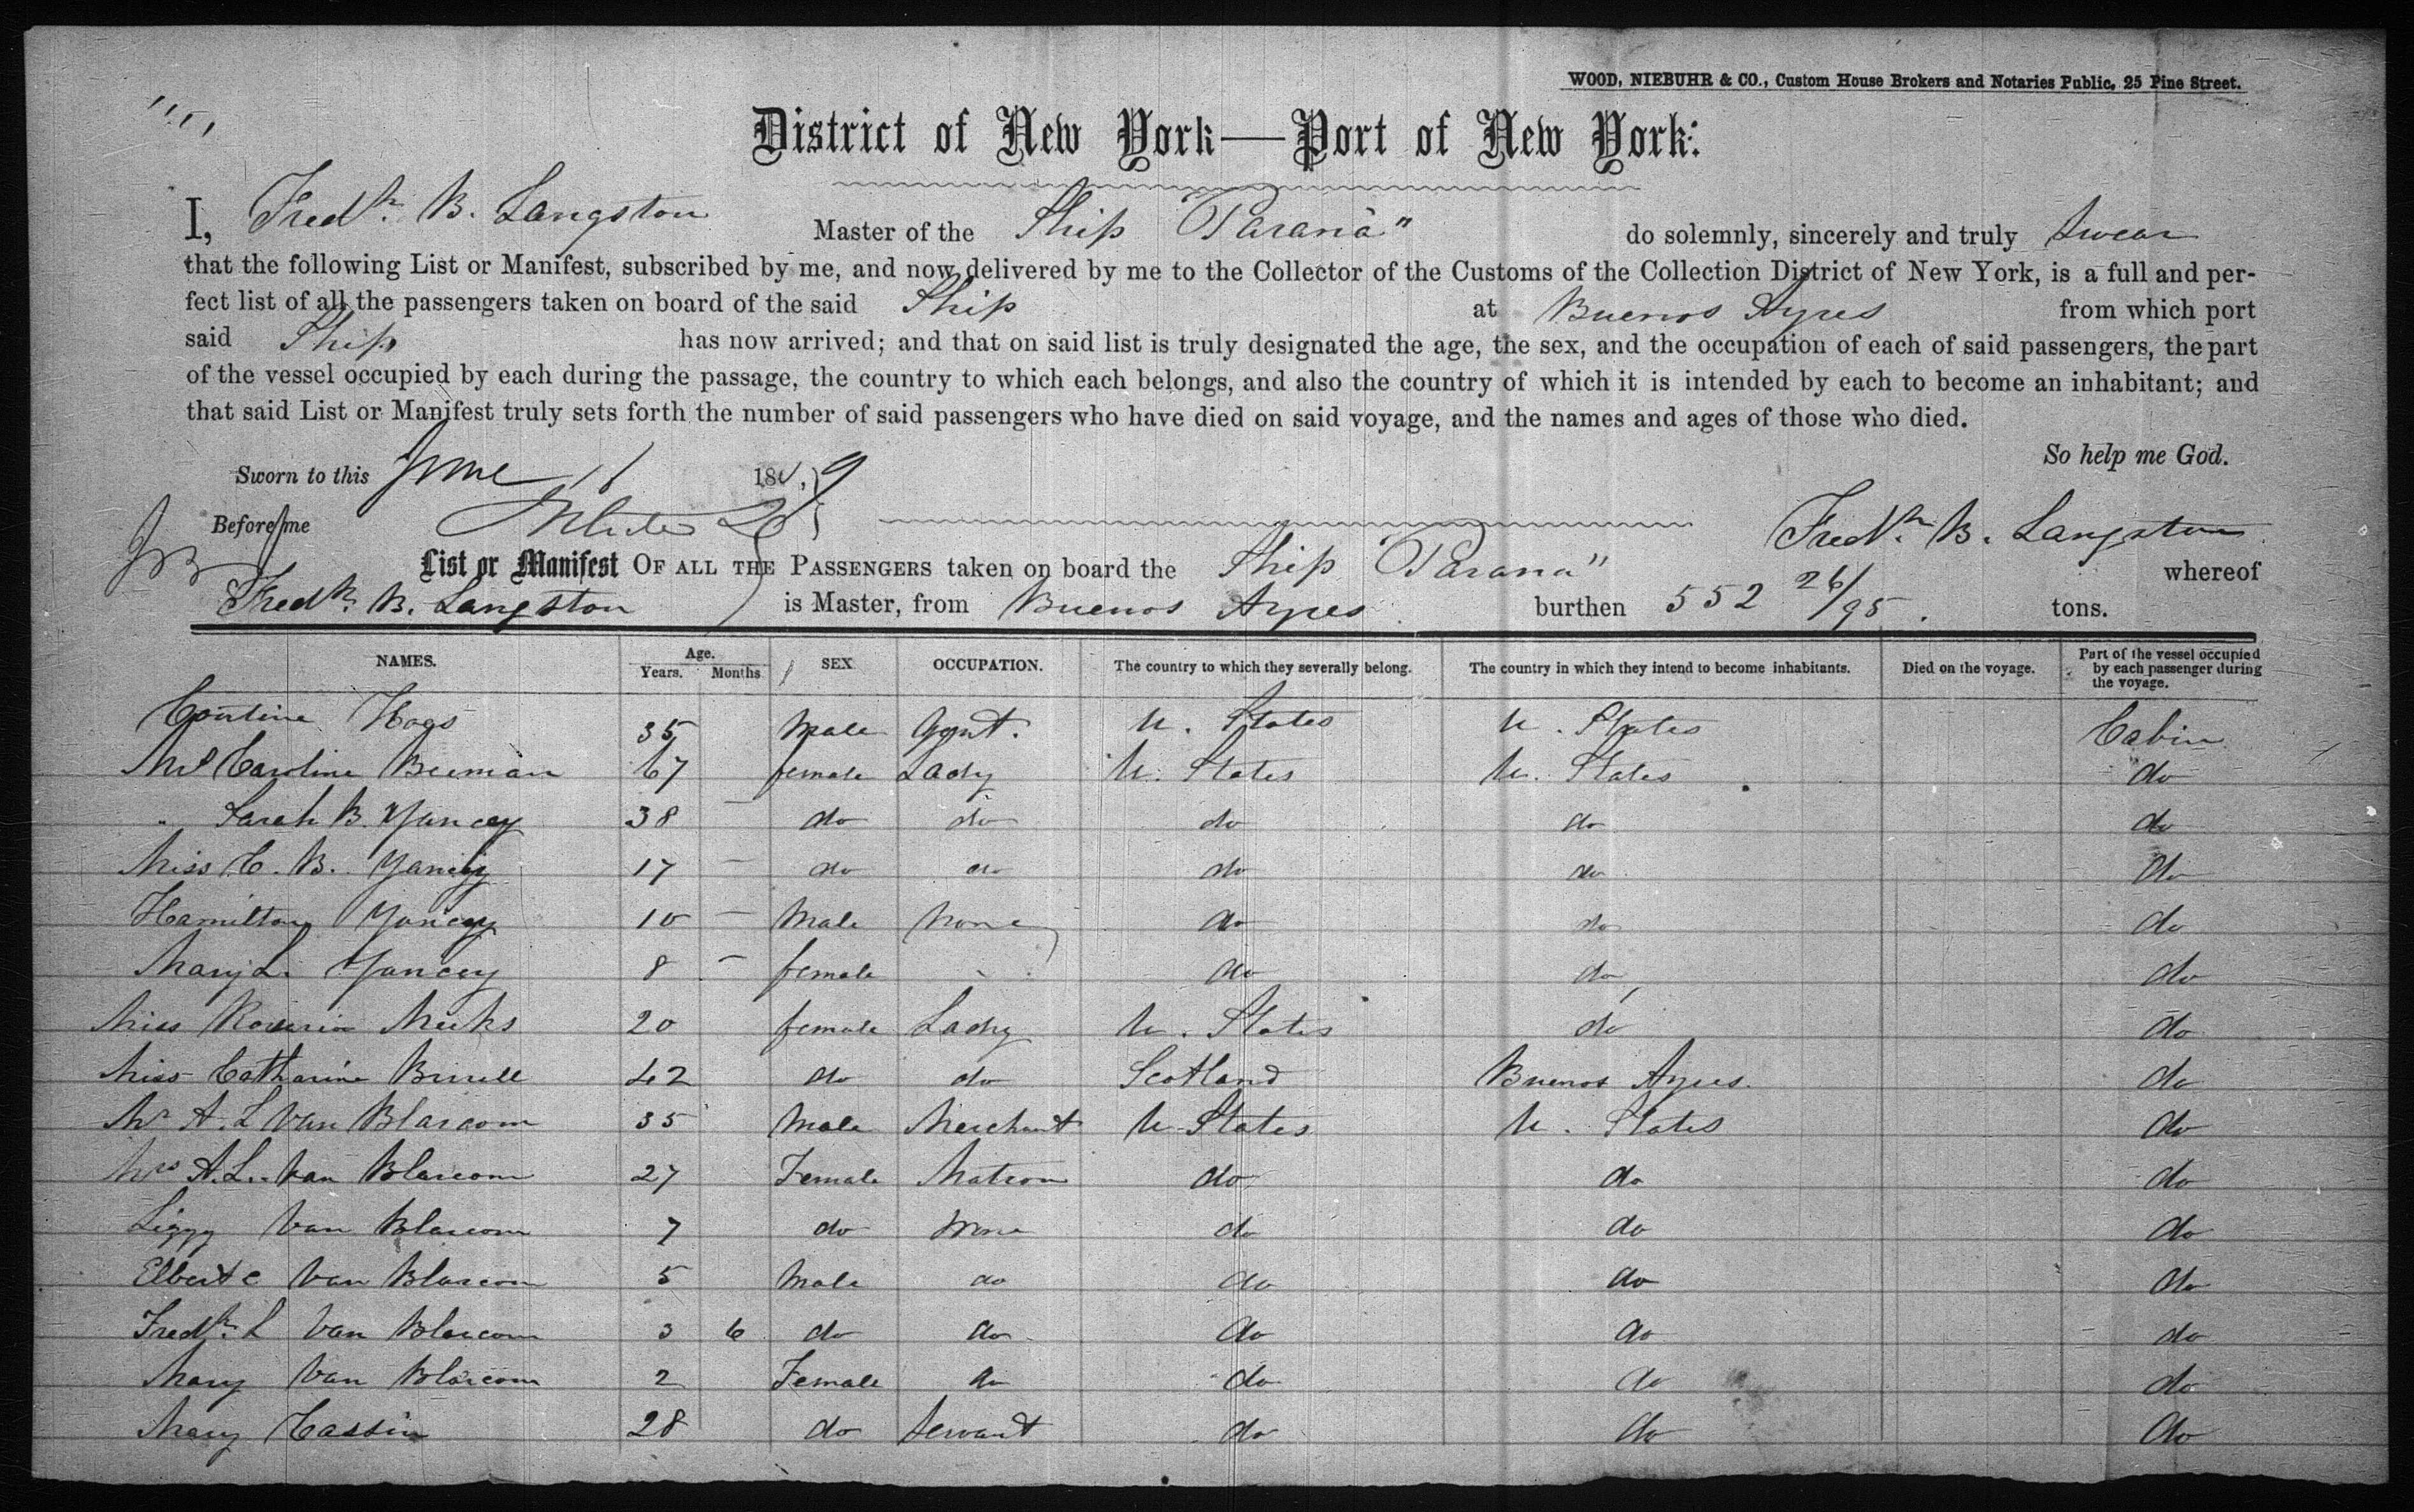 WOOD, NIEBUHR & CO., Custom House Brokers and Notaries Public, 25 Pine Street.
District of New York—Port of New York:
I, Fredk. B. Langston Master of the Ship "Parana" do solemnly, sincerely and truly Swear
that the following List or Manifest, subscribed by me, and now delivered by me to the Collector of the Customs of the Collection District of New York, is a full and per-
fect list of all the passengers taken on board of the said Ship at Buenos Ayres from which port
said Ship has now arrived; and that on said list is truly designated the age, the sex, and the occupation of each of said passengers, the part
of the vessel occupied by each during the passage, the country to which each belongs, and also the country of which it is intended by each to become an inhabitant; and
that said List or Manifest truly sets forth the number of said passengers who have died on said voyage, and the names and ages of those who died.
So help me God.
Sworn to this June 11 18 9
Before me
Fredk. B. Langston
List or Manifest OF ALL THE PASSENGERS taken on board the Ship "Parana" whereof
Fredk. B. Langston is Master, from Buenos Ayres burthen 552 26/95. tons.
NAMES. Age. Years. Months SEX OCCUPATION. The country to which they severally belong. The country in which they intend to become inhabitants. Died on the voyage. Part of the vessel occupied by each passenger during the voyage.
35 Male U. States U. States Cabin
Mrs Caroline Beeman 67 female Lady U. States U. States do
" Sarah B. Yancey 38 - do do do do do
Miss C. B. Yancey 17 - do do do do do
Hamilton Yancey 10 - Male None do do do
Mary L. Yancey 8 - female " do do do
Miss Meeks 20 female Lady U. States do do
Miss Catharine 42 do do Scotland Buenos Ayres. do
Mr A. L Van Blarcom 35 Male Merchant U States U. States do
Mrs A. L. Van Blarcom 27 Female Matron do do do
Lizzy Van Blarcom 7 do None do do do
Elbert C Van Blarcom 5 Male do do do do
Fredk. L Van Blarcom 3 6 do do do do do
Mary Van Blarcom 2 Female do do do do
Mary Cassin 28 do Servant do do do